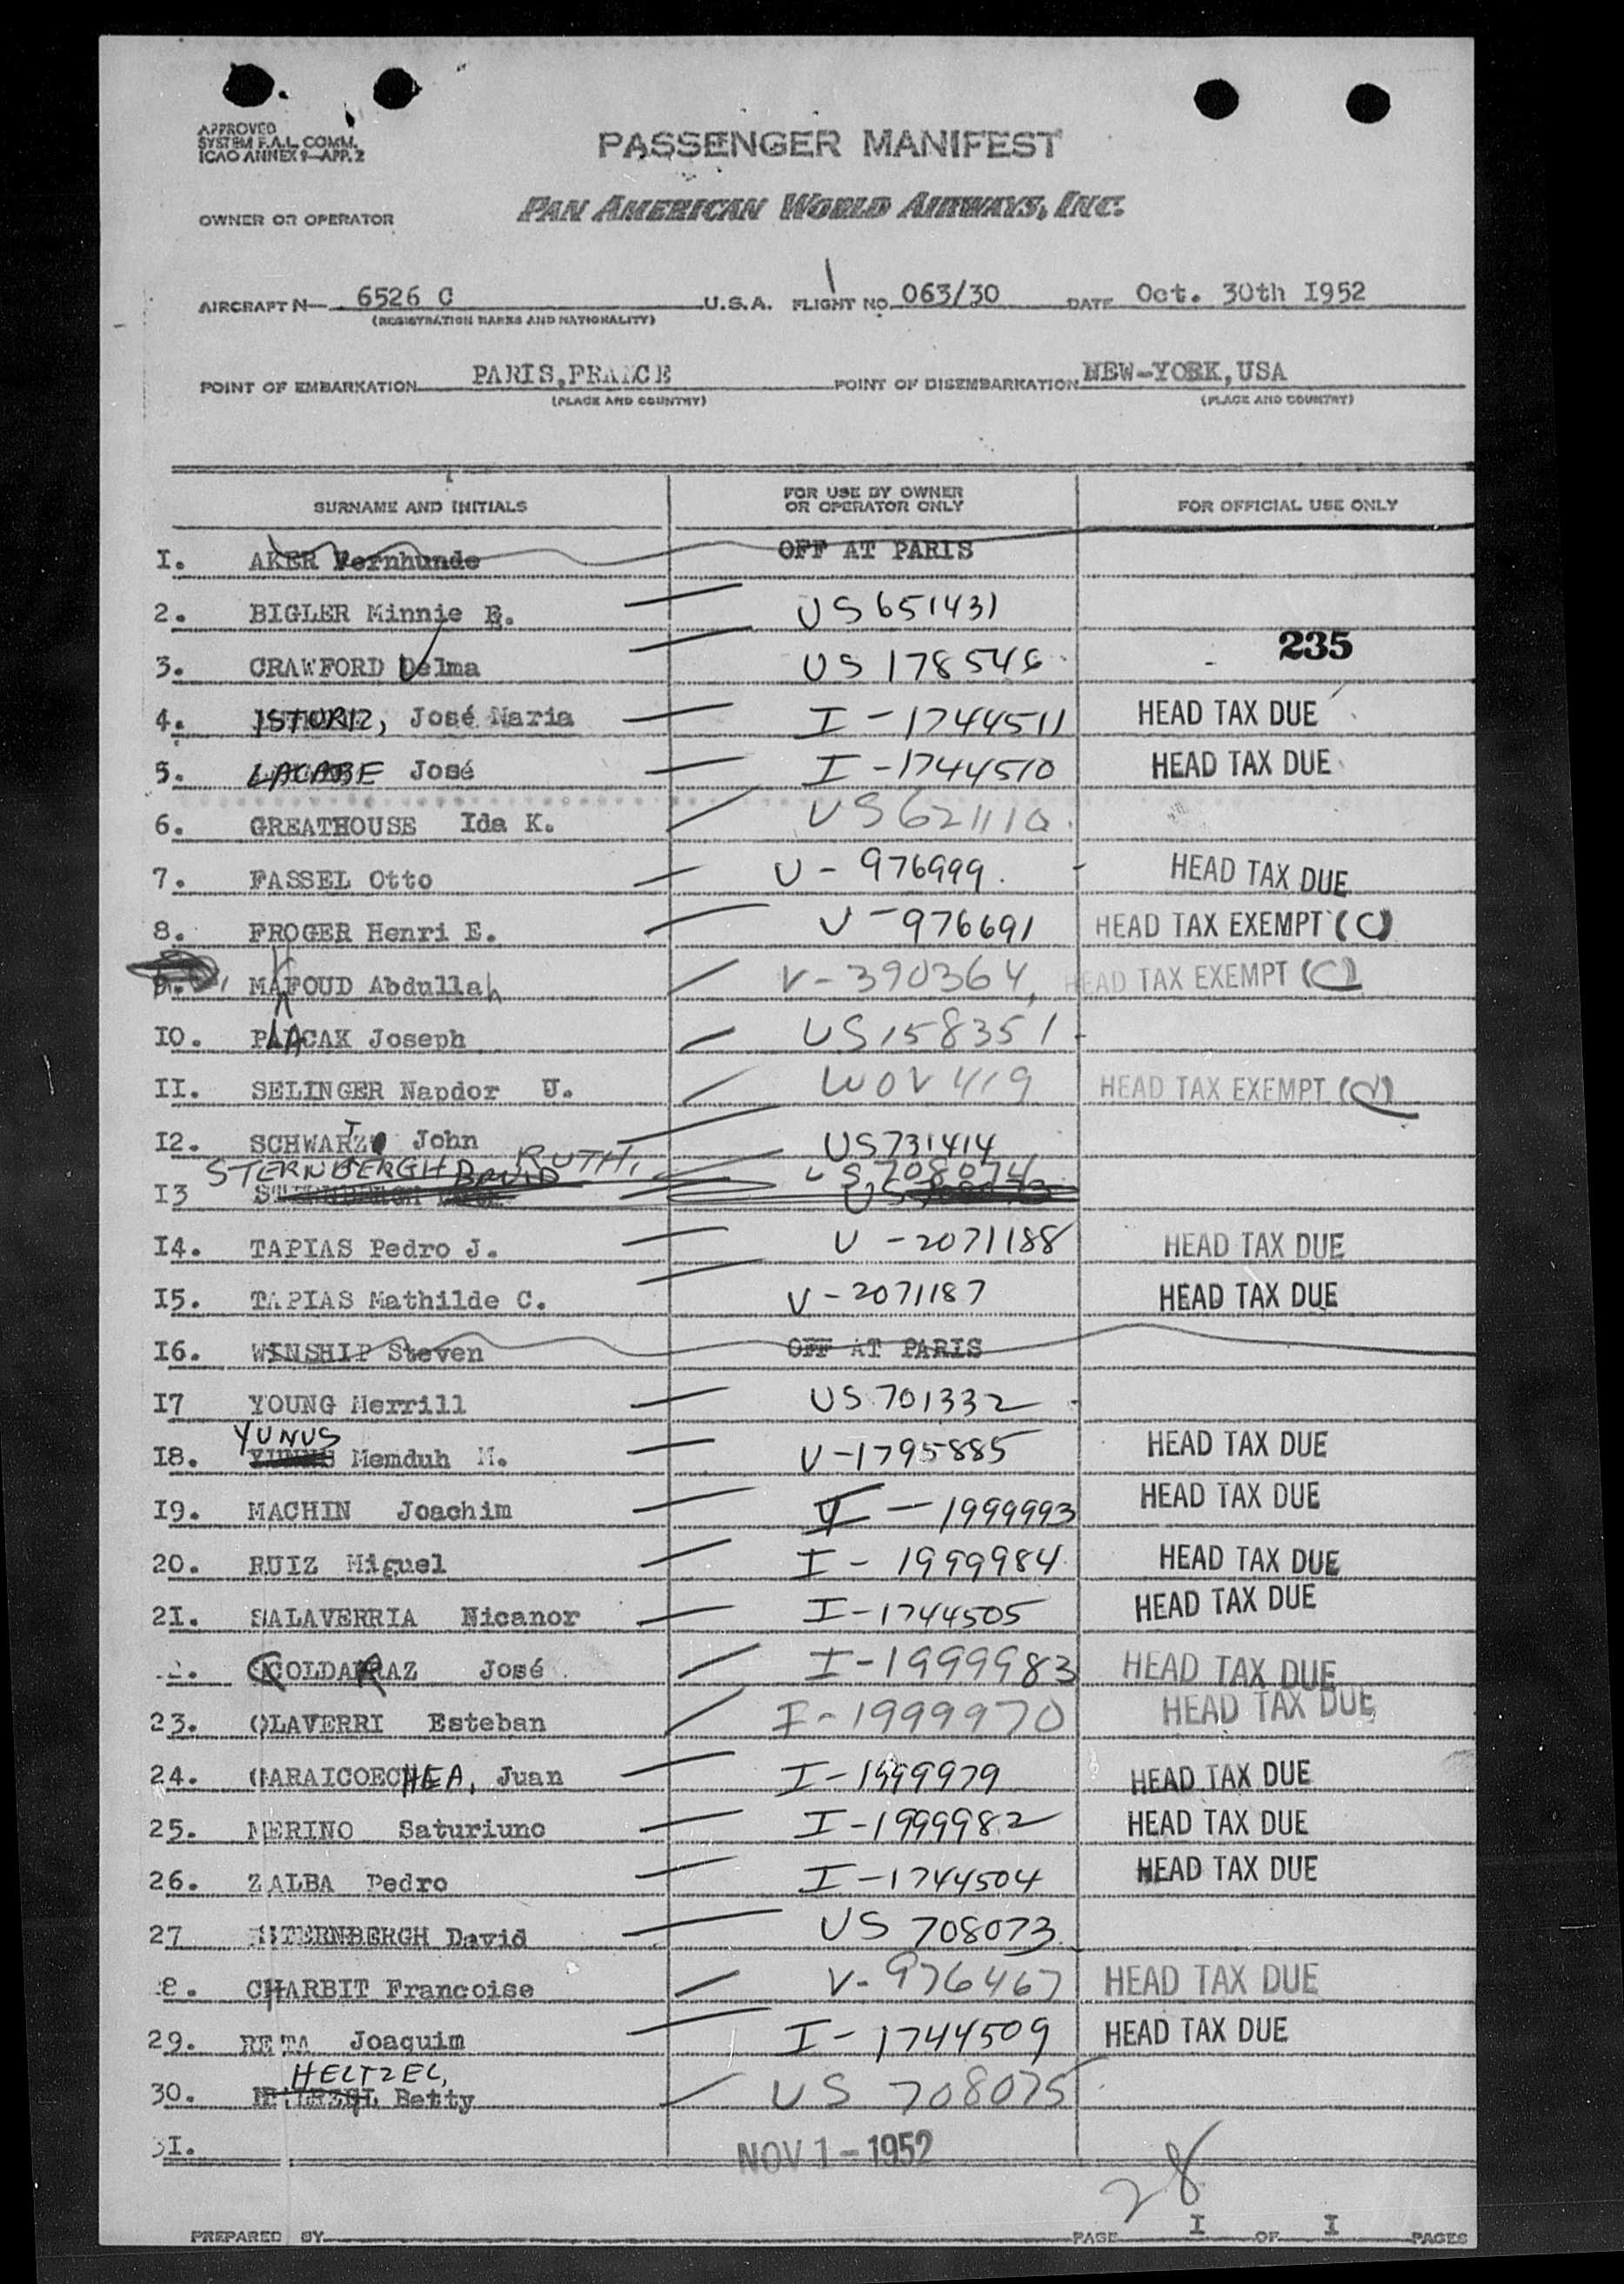 APPROVED
SYSTEM F.A.L. COMM.
ICAO ANNEX 9—APP. 2
PASSENGER MANIFEST
OWNER OR OPERATOR PAN AMERICAN WORLD AIRWAYS, INC.
AIRCRAFT N— 6526 C U.S.A. FLIGHT NO. 063/30 DATE Oct. 30th I952
(REGISTRATION MARKS AND NATIONALITY)
POINT OF EMBARKATION PARIS,FRANCE POINT OF DISEMBARKATION NEW-YORK,USA
(PLACE AND COUNTRY) (PLACE AND COUNTRY)
SURNAME AND INITIALS FOR USE BY OWNER OR OPERATOR ONLY FOR OFFICIAL USE ONLY
I. AKER Fernhunde OFF AT PARIS
2. BIGLER Minnie E. US 651431
235
3. CRAWFORD Velma US 178546
4. ISTURIZ, José Maria I-1744511 HEAD TAX DUE
5. LACABE José I-1744510 HEAD TAX DUE
6. GREATHOUSE Ida K. US 621110
7. FASSEL Otto V-976999 HEAD TAX DUE
8. FROGER Henri E. V-976691 HEAD TAX EXEMPT (C)
9. MAKFOUD Abdullah V-390364 HEAD TAX EXEMPT (C)
IO. PLACAK Joseph US 158351
II. SELINGER Napdor U. WOV 419 HEAD TAX EXEMPT
I2. SCHWARTZ John US 731414
STERNBERGH RUTH. US 708074
I3 STERNBERGH
I4. TAPIAS Pedro J. V-2071188 HEAD TAX DUE
I5. TAPIAS Mathilde C. V-2071187 HEAD TAX DUE
I6. WINSHIP Steven OFF AT PARIS
I7 YOUNG Merrill US 701332
YUNUS
I8. Memduh M. V-1795885 HEAD TAX DUE
I9. MACHIN Joachim I-1999993 HEAD TAX DUE
20. RUIZ Miguel I-1999984 HEAD TAX DUE
2I. SALAVERRIA Nicanor I-1744505 HEAD TAX DUE
2. GOLDARAZ José I-1999983 HEAD TAX DUE
23. OLAVERRI Esteban I-1999970 HEAD TAX DUE
24. GARAICOECHEA, Juan I-1999979 HEAD TAX DUE
25. MERINO Saturiuno I-1999982 HEAD TAX DUE
26. ZALBA Pedro I-1744504 HEAD TAX DUE
27 STERNBERGH David US 708073
8. CHARBIT Francoise V-976467 HEAD TAX DUE
29. RETA Joaquim I-1744509 HEAD TAX DUE
HELTZEL,
30. Betty US 708075
3I. NOV 1-1952
28
PREPARED BY PAGE I OF I PAGES